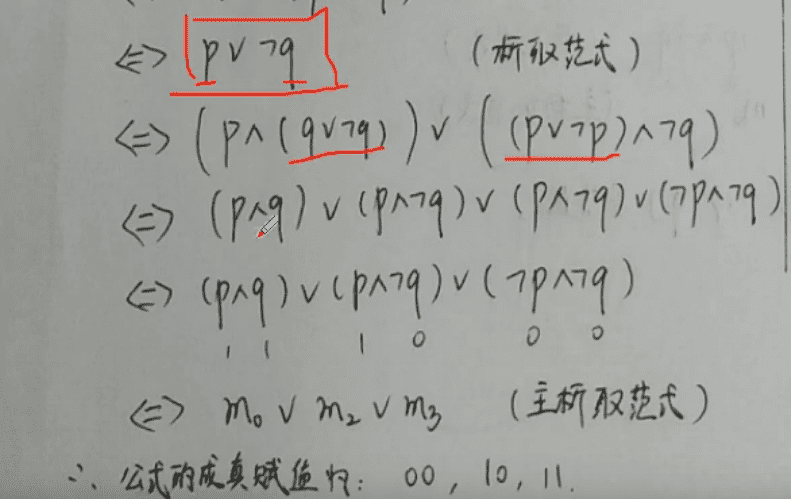 ⇔ p∨¬q （析取范式）
⇔ (p∧(q∨¬q))∨((p∨¬p)∧¬q)
⇔ (p∧q)∨(p∧¬q)∨(p∧¬q)∨(¬p∧¬q)
⇔ (p∧q)∨(p∧¬q)∨(¬p∧¬q)
1 1 1 0 0 0
⇔ m₀∨m₂∨m₃ （主析取范式）
∴ 公式的成真赋值为：00，10，11.